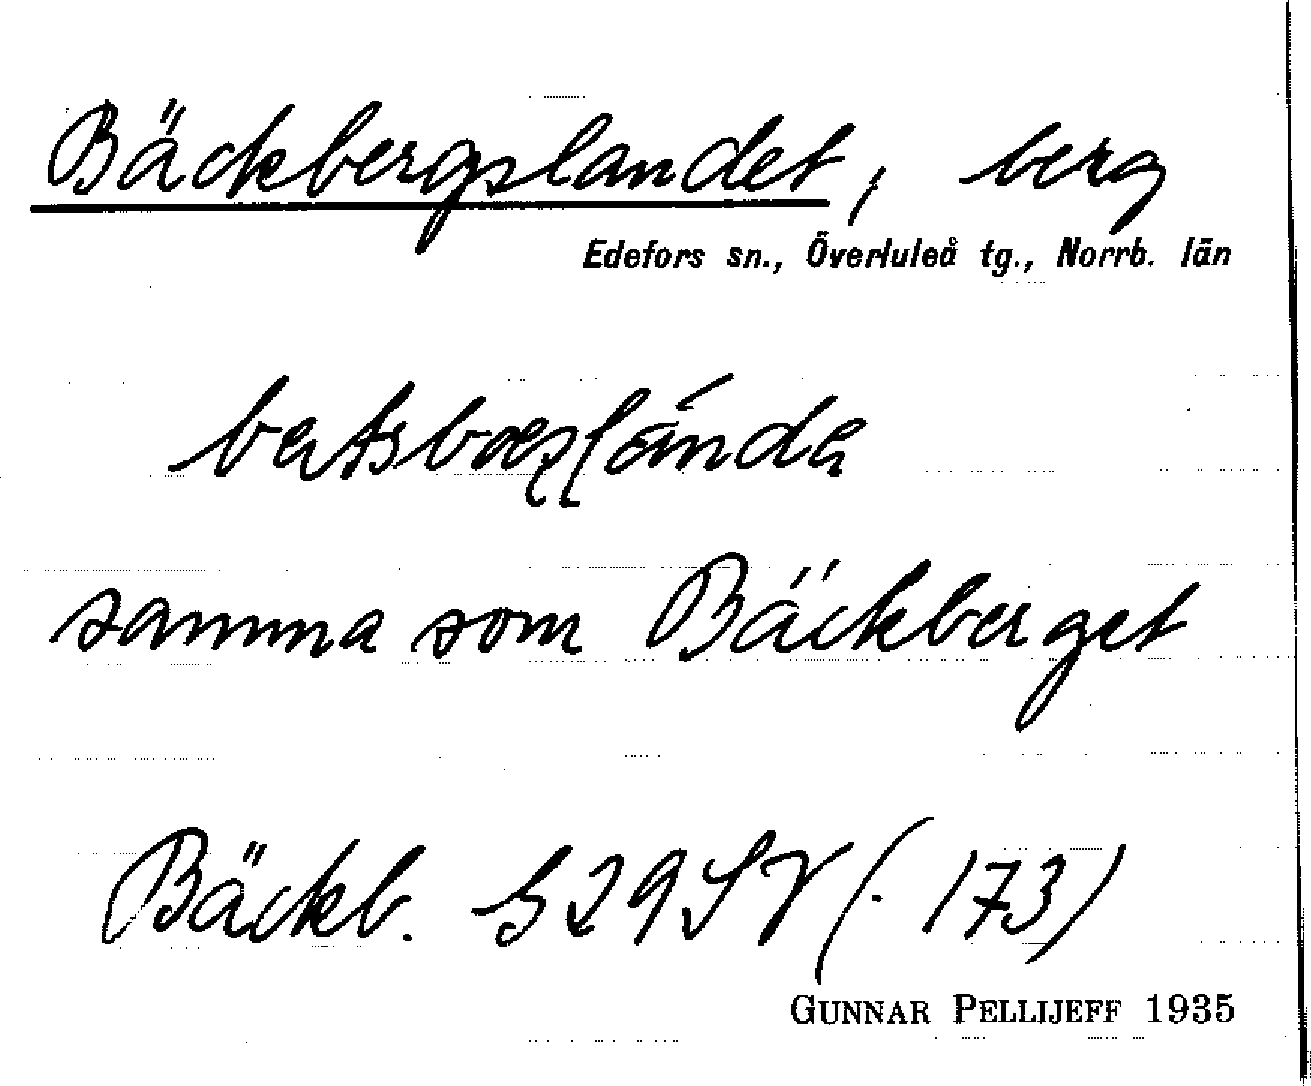 Bäckbergslandet, berg
Edefors sn., Överluleå tg., Norrb. län
samma som Bäckberget
Bäckb. S 29 SV (. 173)
GUNNAR PELLIJEFF 1935